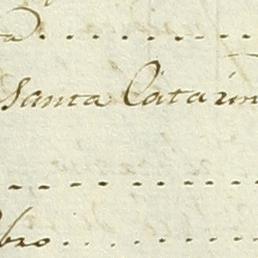 Santa Catarin
bro